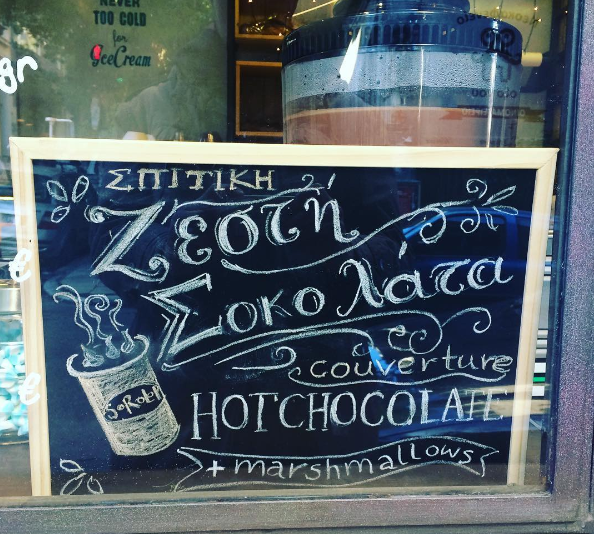 NEVER
TOO COLD
for
IceCream
gr
ΣΠΙΤΙΚΗ
Ζεστή
Σοκολάτα
couverture
HOTCHOCOLATE
+ marshmallows